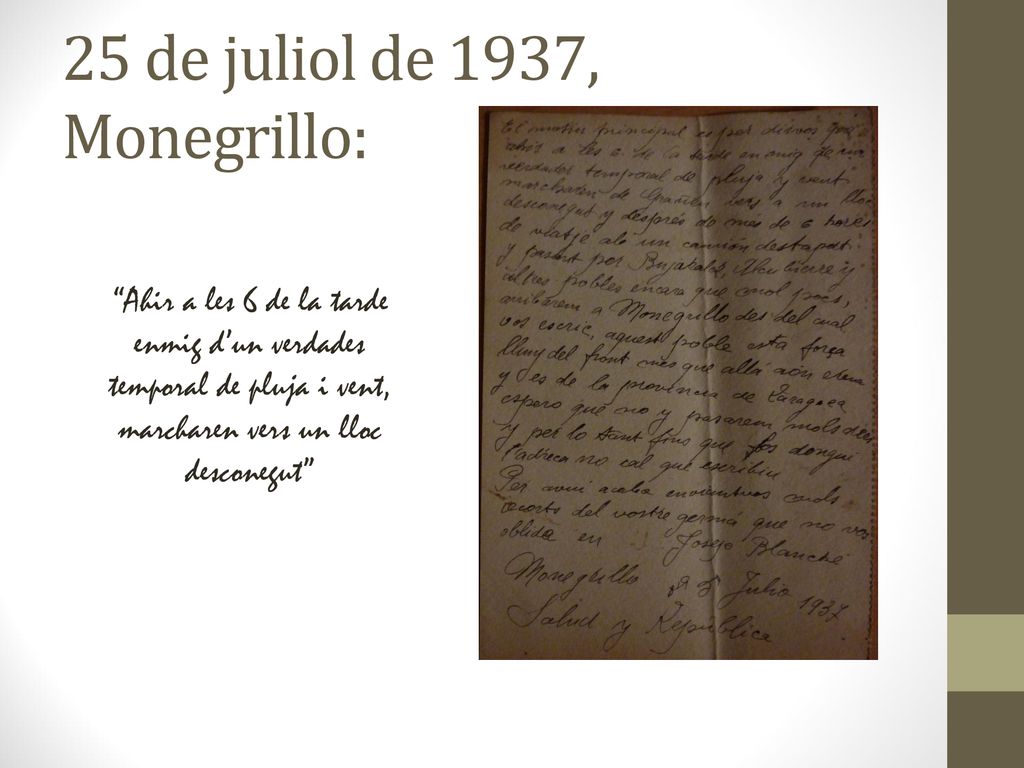 25 de juliol de 1937,
Monegrillo:
“Ahir a les 6 de la tarde
enmig d’un verdades
temporal de pluja i vent,
marcharen vers un lloc
desconegut”
El motiu principal es per dirvos que
ahir a les 6 de la tarde en mig de un
verdader temporal de pluja y vent
marcharem de Grañen vers a un lloc
desconegut y després de més de 6 hores
de viatje alt un camión destapat
y pasant por Bujaraloz, Alcubierre y
altres pobles encara que molt pocs,
arribarem a Monegrillo des del cual
vos escric, aquest poble esta força
lluny del front mes que allá aón
y es de la provincia de Zaragoza
espero que no y pasarem mols dies
y per lo tant fins que dongui
l'adreca no cal que escribiu
Per avui acaba enviantvos mols
recorts del vostre germá que no vos
oblida en Josep Blanché
Monegrillo 25 Julio 1937
Salud y República